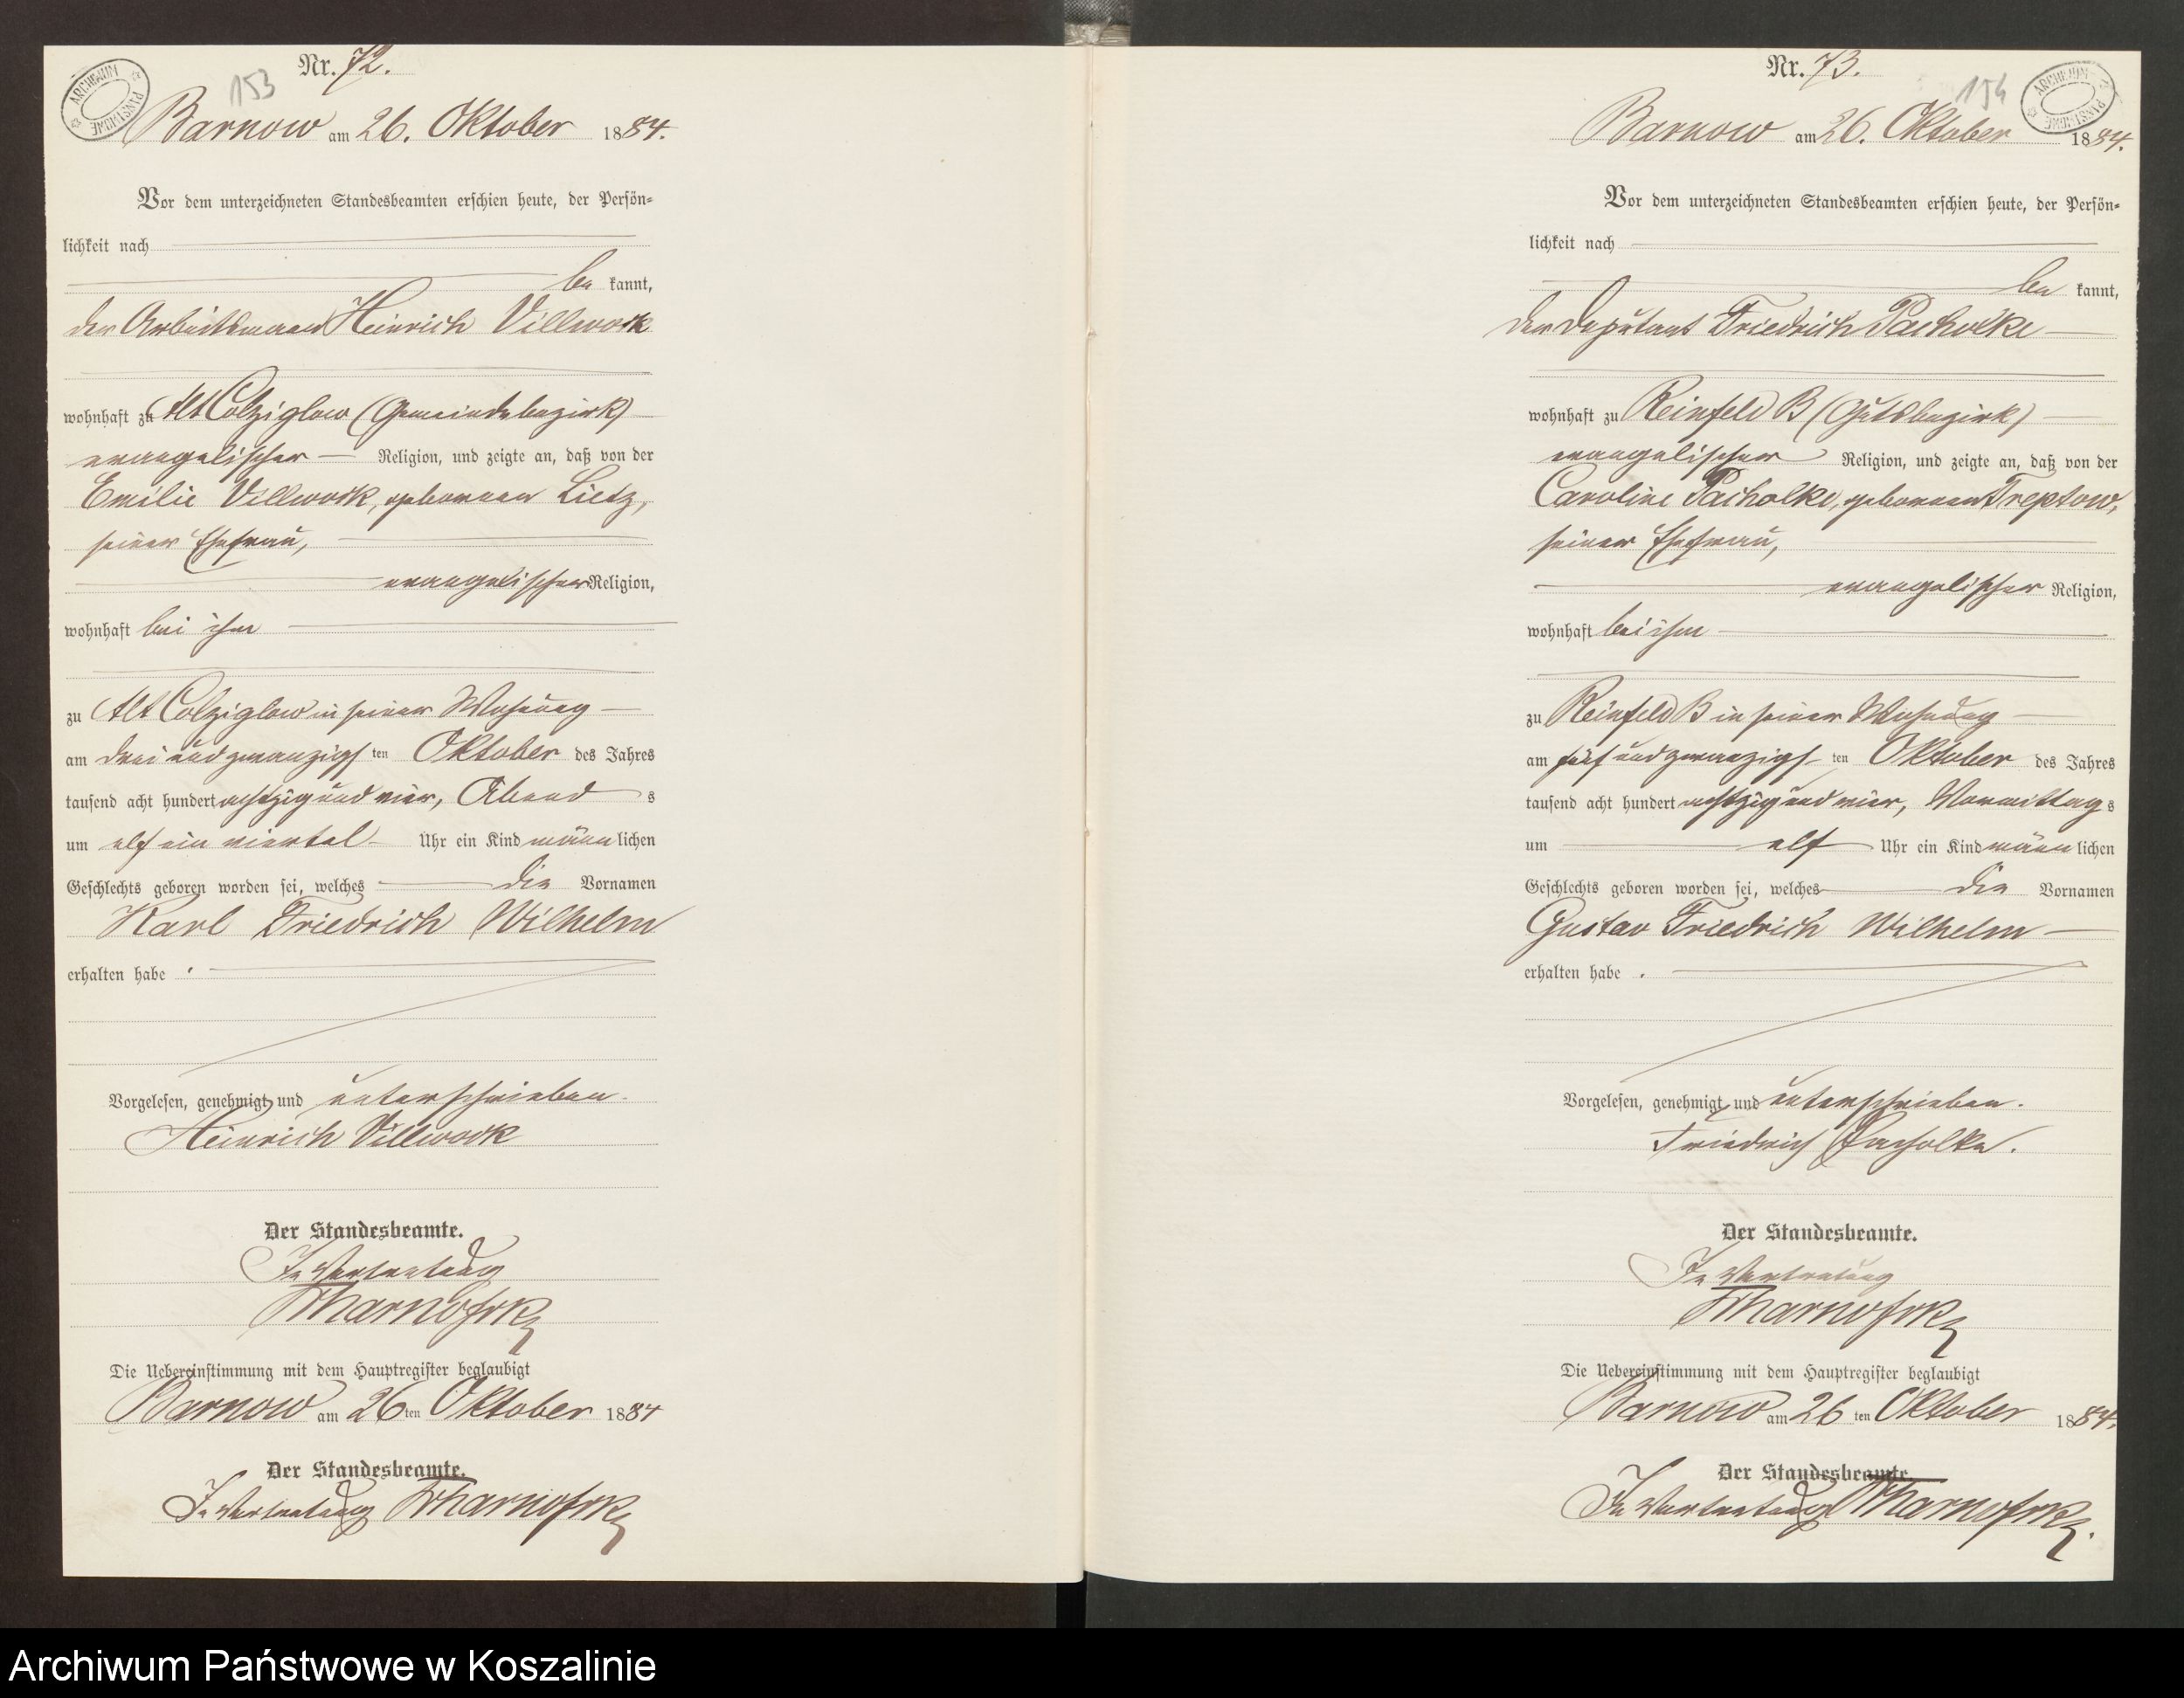 Nr. 72.
153
ARCHIWUM PAŃSTWOWE
Barnow am 26. Oktober 1884.
Vor dem unterzeichneten Standesbeamten erschien heute, der Persön-
lichkeit nach
be kannt,
der Arbeitsmann Heinrich Villwock
wohnhaft zu Alt Colziglow (Gemeindebezirk)
evangelischer Religion, und zeigte an, daß von der
Emilie Villwock, geborenen Lietz,
seiner Ehefrau,
evangelischer Religion,
wohnhaft bei ihm
zu Alt Colziglow in seiner Wohnung
am drei und zwanzigs ten Oktober des Jahres
tausend acht hundert achtzig und vier, Abend s
um elf ein viertel Uhr ein Kind männ lichen
Geschlechts geboren worden sei, welches die Vornamen
Karl Friedrich Wilhelm
erhalten habe .
Vorgelesen, genehmigt und unterschrieben.
Heinrich Villwock
Der Standesbeamte.
In Vertretung
Die Uebereinstimmung mit dem Hauptregister beglaubigt
Barnow am 26 ten Oktober 1884
Der Standesbeamte.
In Vertretung
Nr. 73.
154
ARCHIWUM PAŃSTWOWE
Barnow am 26. Oktober 1884.
Vor dem unterzeichneten Standesbeamten erschien heute, der Persön-
lichkeit nach
be kannt,
der Deputant Friedrich Pacholke
wohnhaft zu Reinfeld B (Gutsbezirk)
evangelischer Religion, und zeigte an, daß von der
Caroline Pacholke, geborenen Treptow,
seiner Ehefrau,
evangelischer Religion,
wohnhaft bei ihm
zu Reinfeld B in seiner Wohnung
am fünf und zwanzigs ten Oktober des Jahres
tausend acht hundert achtzig und vier, Vormittag s
um elf Uhr ein Kind männ lichen
Geschlechts geboren worden sei, welches die Vornamen
Gustav Friedrich Wilhelm
erhalten habe .
Vorgelesen, genehmigt und unterschrieben.
Friedrich Pacholke.
Der Standesbeamte.
In Vertretung
Die Uebereinstimmung mit dem Hauptregister beglaubigt
Barnow am 26 ten Oktober 1884.
Der Standesbeamte.
In Vertretung
Archiwum Państwowe w Koszalinie